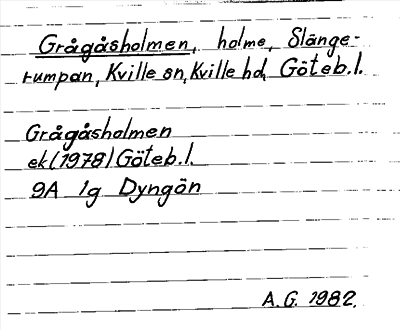 Grågåsholmen, holme, Slänge-
rumpan, Kville sn, Kville hd, Göteb.l.
Grågåsholmen
ek (1978) Göteb.l.
9A 1g Dyngön
A.G. 1982.